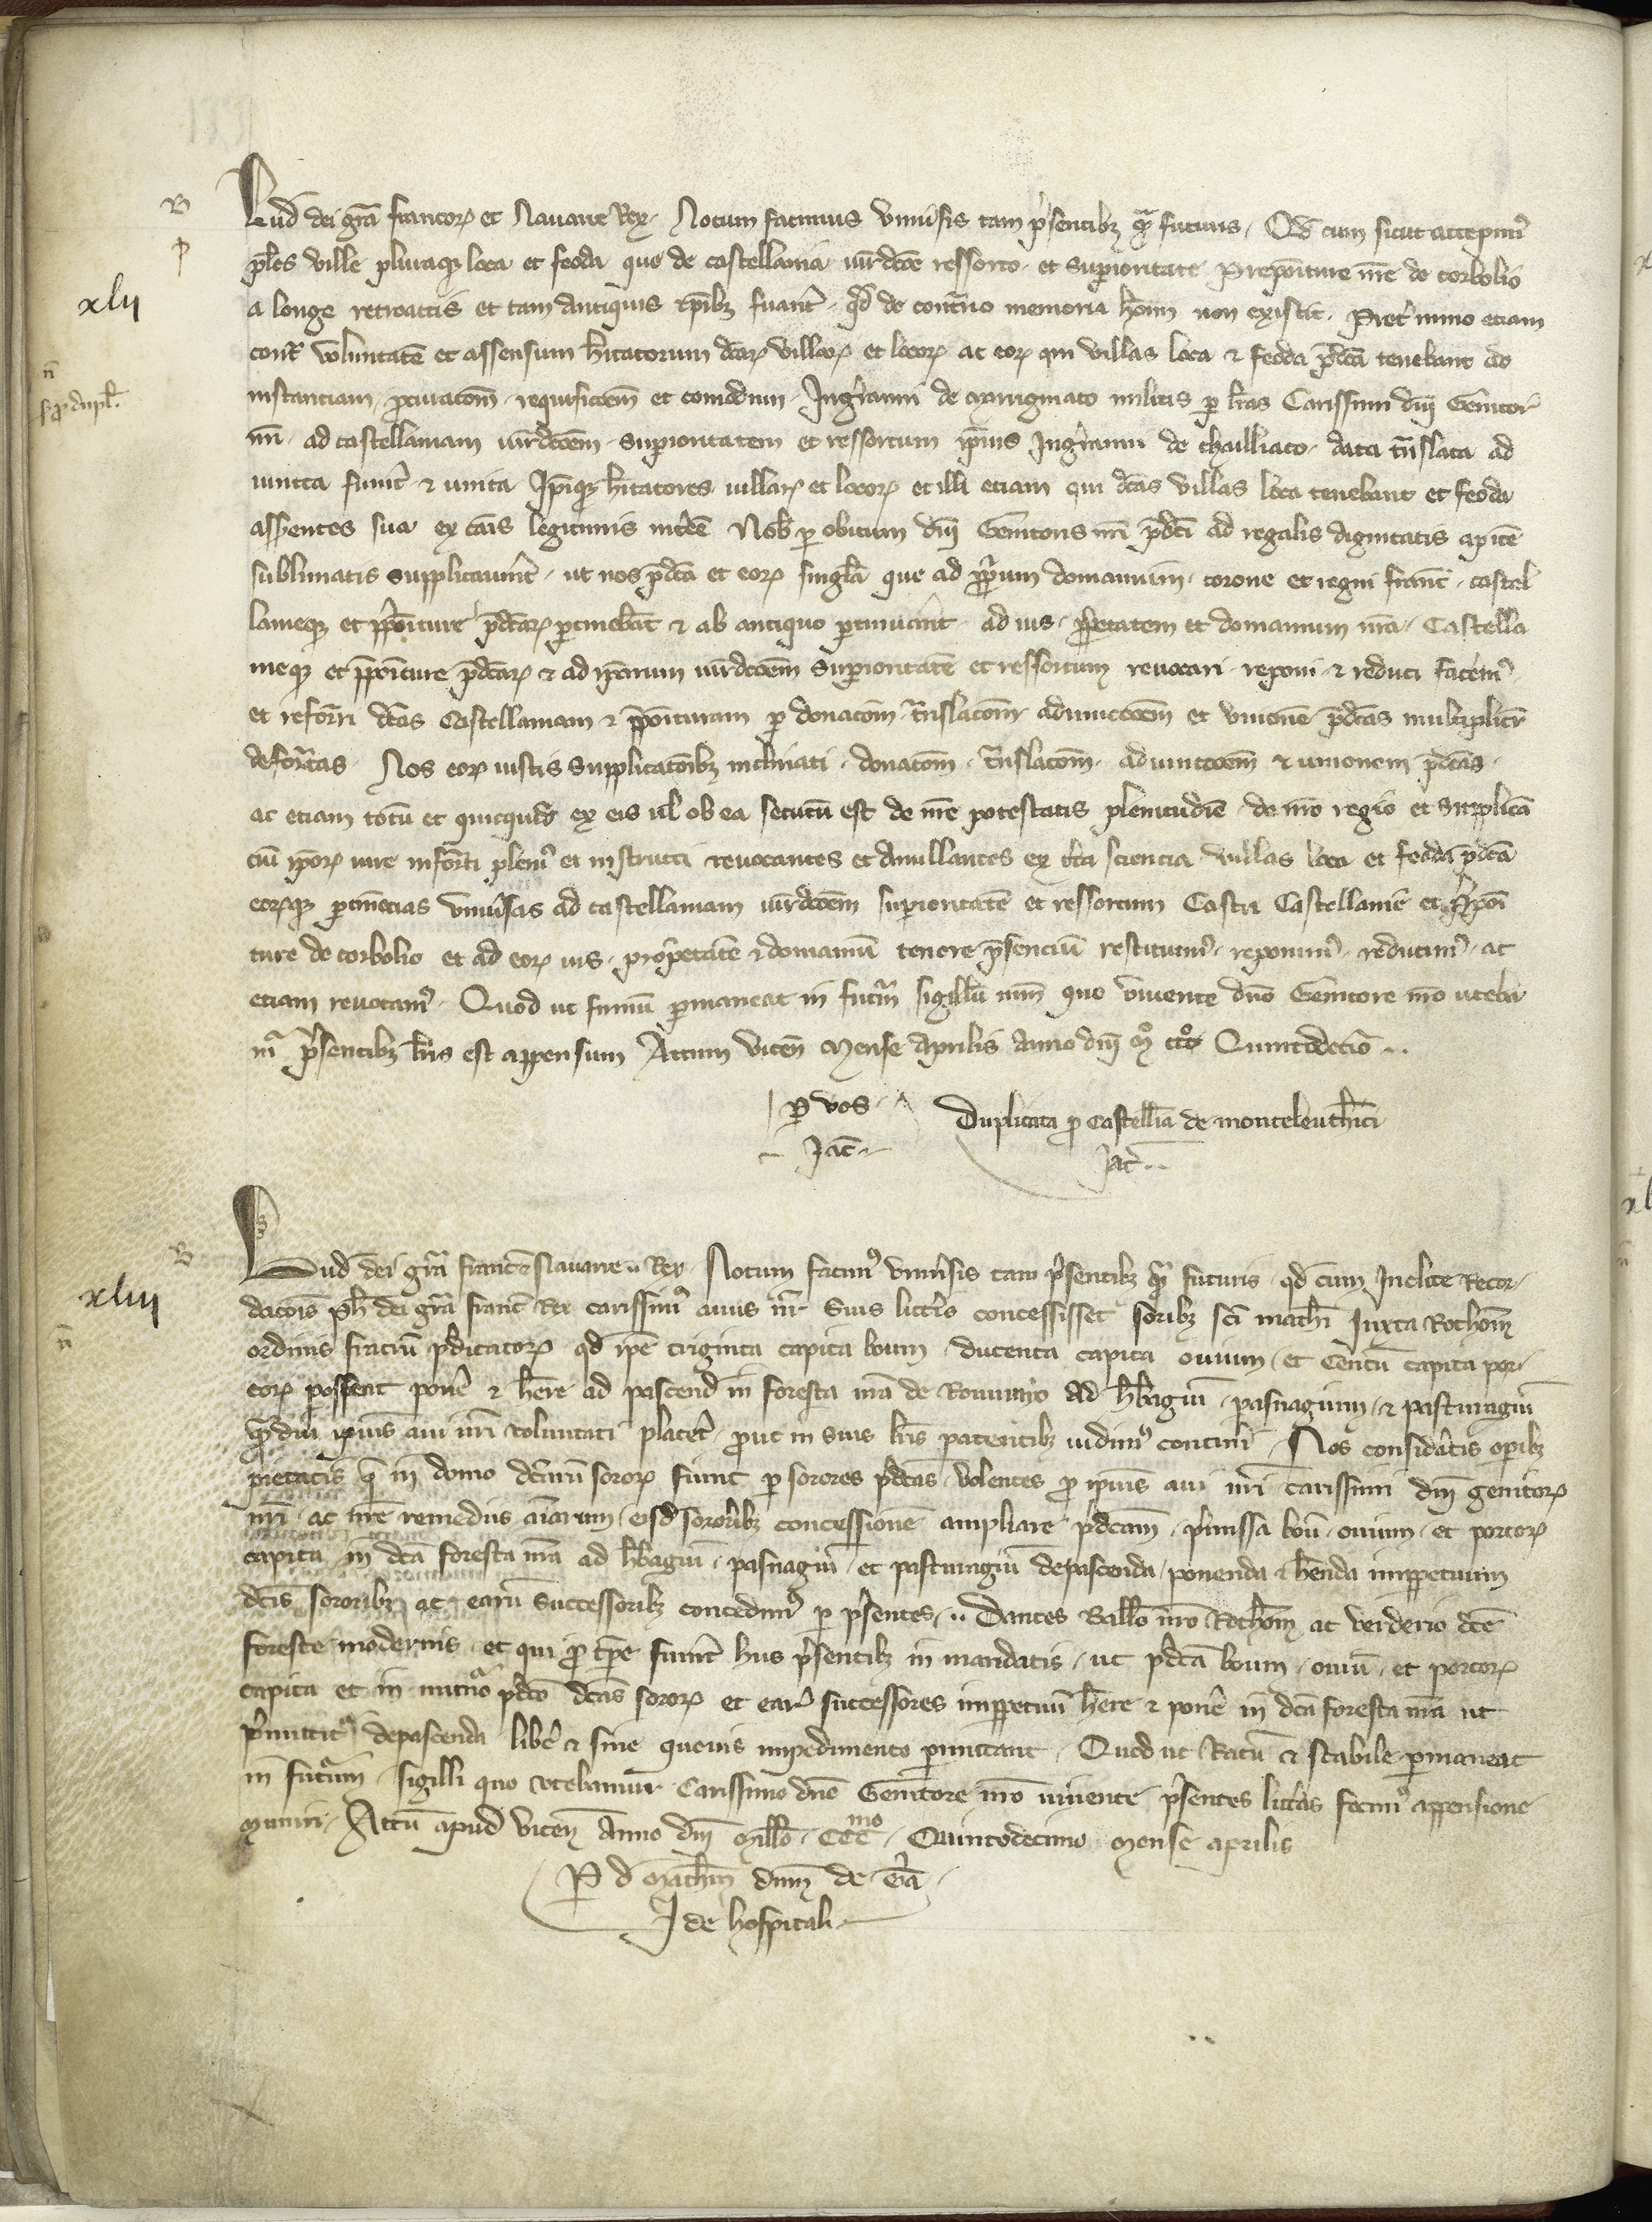 B
Lud dei gra francor et Navarre Rex. Notum facimus universis tam presentibz qam futuris. Qd cum sicut accepimus
p
ples ville pluraqz loca et feoda que de castellania iurdicoe ressorto et superioritate prepoiture nre de corbolio
xlii
a longe retroactis et tam antiquis tpibz fuerunt qd de contrario memoria hoim non existit. preter immo etiam
contra voluntatem et assensum hitatorum dcar villar et locor ac eor qui villas loca et feoda pdca tenebant ad
n
sr duplr
instanciam procuracom requisicoem et comodum Ingeranni de militis per lras Carissimi dni Genitor
nri ad castellaniam iurdicoem superioritatem et ressortum ipius Ingeranni de chailliaco data translata ad
iuncta fuerunt et unita Ipiqz hitatores villar et locor et illi etiam qui dcas villas loca tenebant et feoda
asserentes sua ex cais legitimis interee Nob per obitum dni Genitoris nri pdci ad regalis dignitatis apicem
sublimatis supplicaverunt ut nos pdca et eor singla que ad proprium domanium corone et regni franc castel
laneqz et ppoiture pdcar ptinebat et ab antiquo ptinuerunt ad ius proprietatem et domanium nra Castella
nieqz et ppoiture pdcar et ad ipsarum iurdicoem superioritate et ressortum revocari reponi et reduci facerem
et reformari dcas Castellaniam et ppoituram per donacom translacoem adiunccoem et unionem pdcas multiplicr
deformatas Nos eor iustis supplicacoibz inclinati donacom translacom adiunccoem et unionem pdcas
ac etiam totu et quicquid ex eis ul ob ea secutu est de nre potestatis plenitudie de nro regio et supplica
ciu ipor iure informati pleni et instructi revocantes et anullantes ex certa sciencia villas loca et feoda pdca
eorqz ptinecias universas ad castellaniam iurdicoem superioritate et ressortum Castri Castellanie et ppoi
ture de corbolio et ad eor ius proprietate et domaniu tenore psenciu restituim reponim reducim ac
etiam revocam. Quod ut firmu permaneat in futur sigillu nrm quo vivente dno Genitore nro uteba
mur presentibz lris est appensum Actum Vicen Mense Aprilis Anno dni mo ccco Quintodecio
per vos Duplicata pro Castellia de monteleutherici
Jac Jac
B
Lud dei gra franc et Navarre Rex Notum facim universis tam presentibz qam futuris qd cum Inclite Recor
xliii
dacois ph dei gra franc Rex carissim avus nr suis litteris concessisset soribz sci mathi Iuxta Rothom
n
ordinis fratru predicator qd ipe triginta capita boum ducenta capita ovium et centu capita por
cor possent pone et here ad pascend in foresta nra de Roumaro ad hbagiu pasnagium et pasturagiu
qamdiu ipius avi nri voluntati placet prout in suis lris patentibz vidim contineri Nos consideratis operibz
pietatis que in domo dcaru soror fiunt per sorores predcas volentes pro ipius avi nri carissimi dni genitor
nri ac nre remediis aiarum eisd sororibz concessionem ampliare predcam premissa bou ovium et porcor
capita in dca foresta nra ad hbagiu pasnagiu et pasturagiu depascenda ponenda et henda imppetuum
dcis sororibz ac earu successoribz concedim per presentes Dantes Ballio nro Rothom ac verderio dce
foreste modernis et qui pro tpe fuerint hus presentibz in mandatis ut predca boum oviu et porcor
capita et in numero predco dcas soror et ear successores imppetuu here et pone in dca foresta nra ut
premittitur depascenda libere et sine quovis impedimento permittant Quod ut Ratu et stabile permaneat
in futurum sigilli quo utebamur Carissimo dno Genitore nro vivente presentes litteras fecim appensione
Muniri Actu apud Vicen Anno dni Millo CCCmo Quintodecimo Mense aprilis
P d Mathm dnm de
J de hospitali